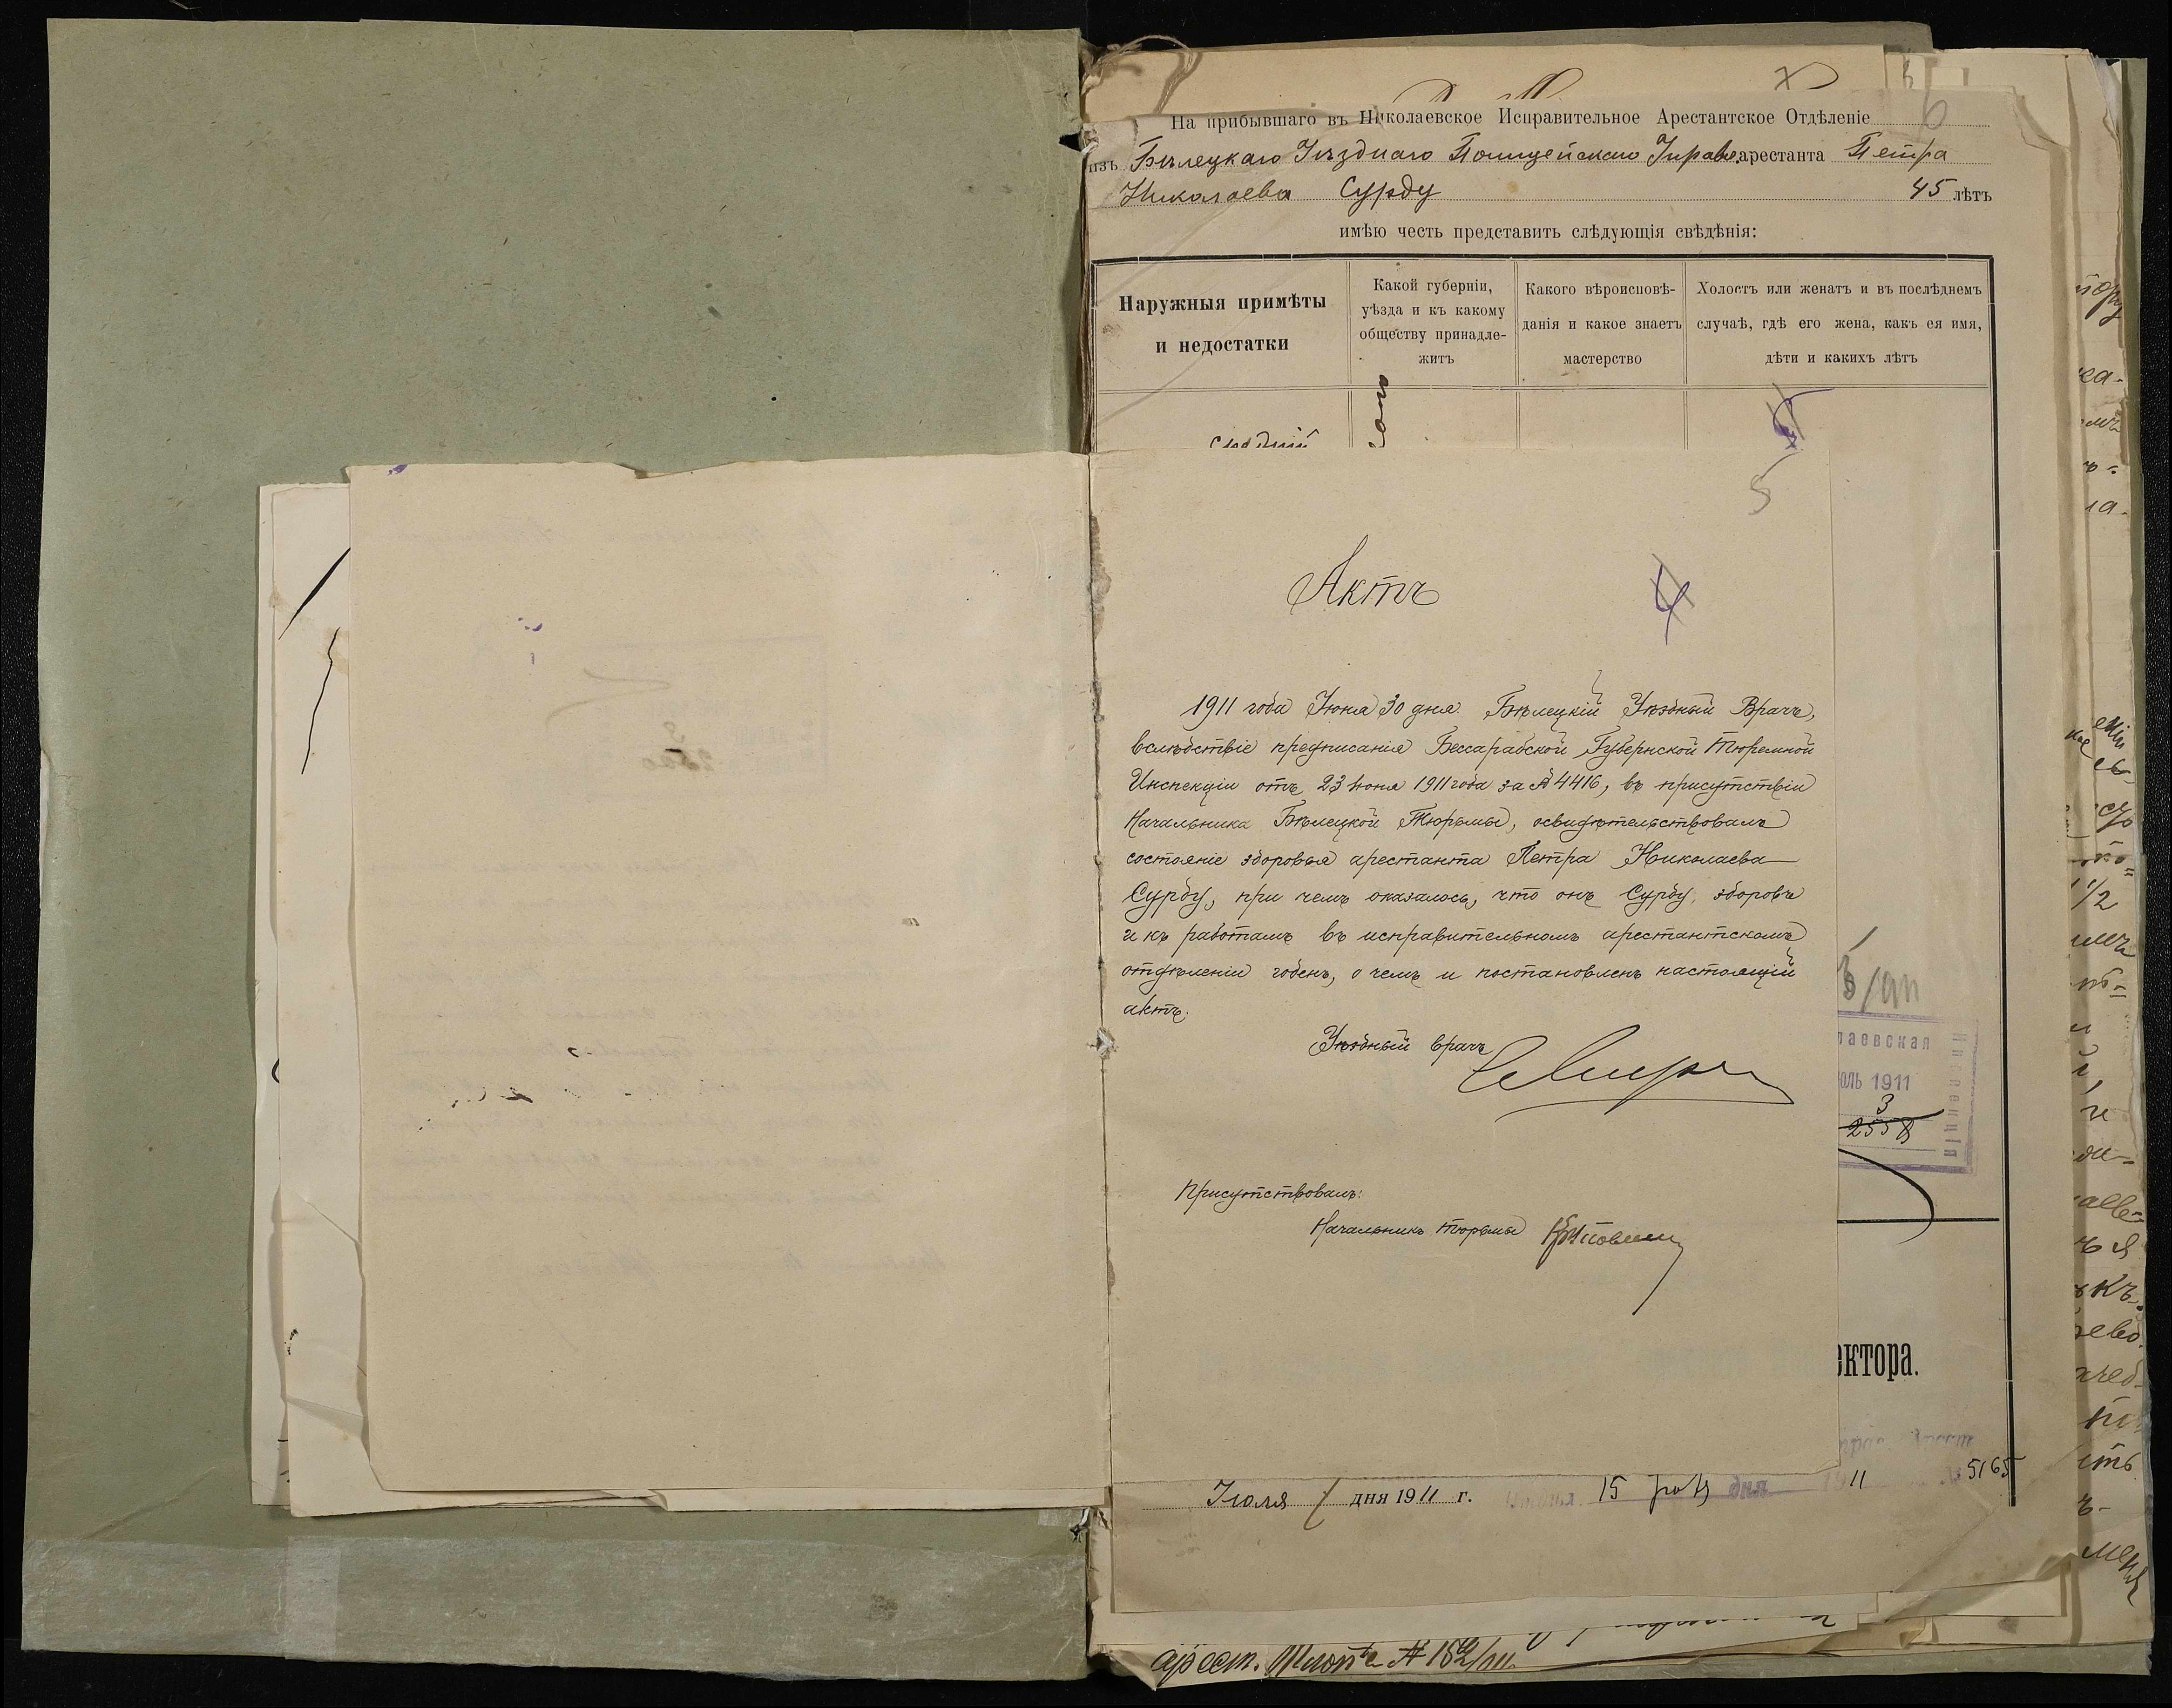 На прибывшаго въ Николаевское Исправительное Арестантское Отдѣленіе
6
изъ Бѣлецкаго Уѣзднаго Полицейскаго Управ. арестанта Петра
Николаева Сурду 45 лѣтъ
имѣю честь представить слѣдующія свѣдѣнія:
Наружныя примѣты
и недостатки
Какой губерніи,
уѣзда и къ какому
обществу принадле-
житъ
Какого вѣроисповѣ-
данія и какое знаетъ
мастерство
Холостъ или женатъ и въ послѣднемъ
случаѣ, гдѣ его жена, какъ ея имя,
дѣти и какихъ лѣтъ
5
Актъ
4
1911 года Июня 30 дня. Бѣлецкій Уѣздный Врачъ,
вслѣдствіе предписанія Бессарабской Губернской Тюремной
Инспекціи отъ 23 Июня 1911 года за № 4416, въ присутствіи
Начальника Бѣлецкой Тюрьмы, освидѣтельствовалъ
состояніе здоровья арестанта Петра Николаева
Сурду, при чемъ оказалось, что онъ Сурду, здоровъ
и къ работамъ въ исправительномъ арестантскомъ
отдѣленіи годенъ, о чемъ и постановленъ настоящій
актъ.
Уѣздный врачъ
Присутствовалъ:
Начальникъ тюрьмы
/911
лаевская
1911
3
2558
ектора.
Июля дня 1911 г. 15 дня 1911 5165
арест. № 152/911